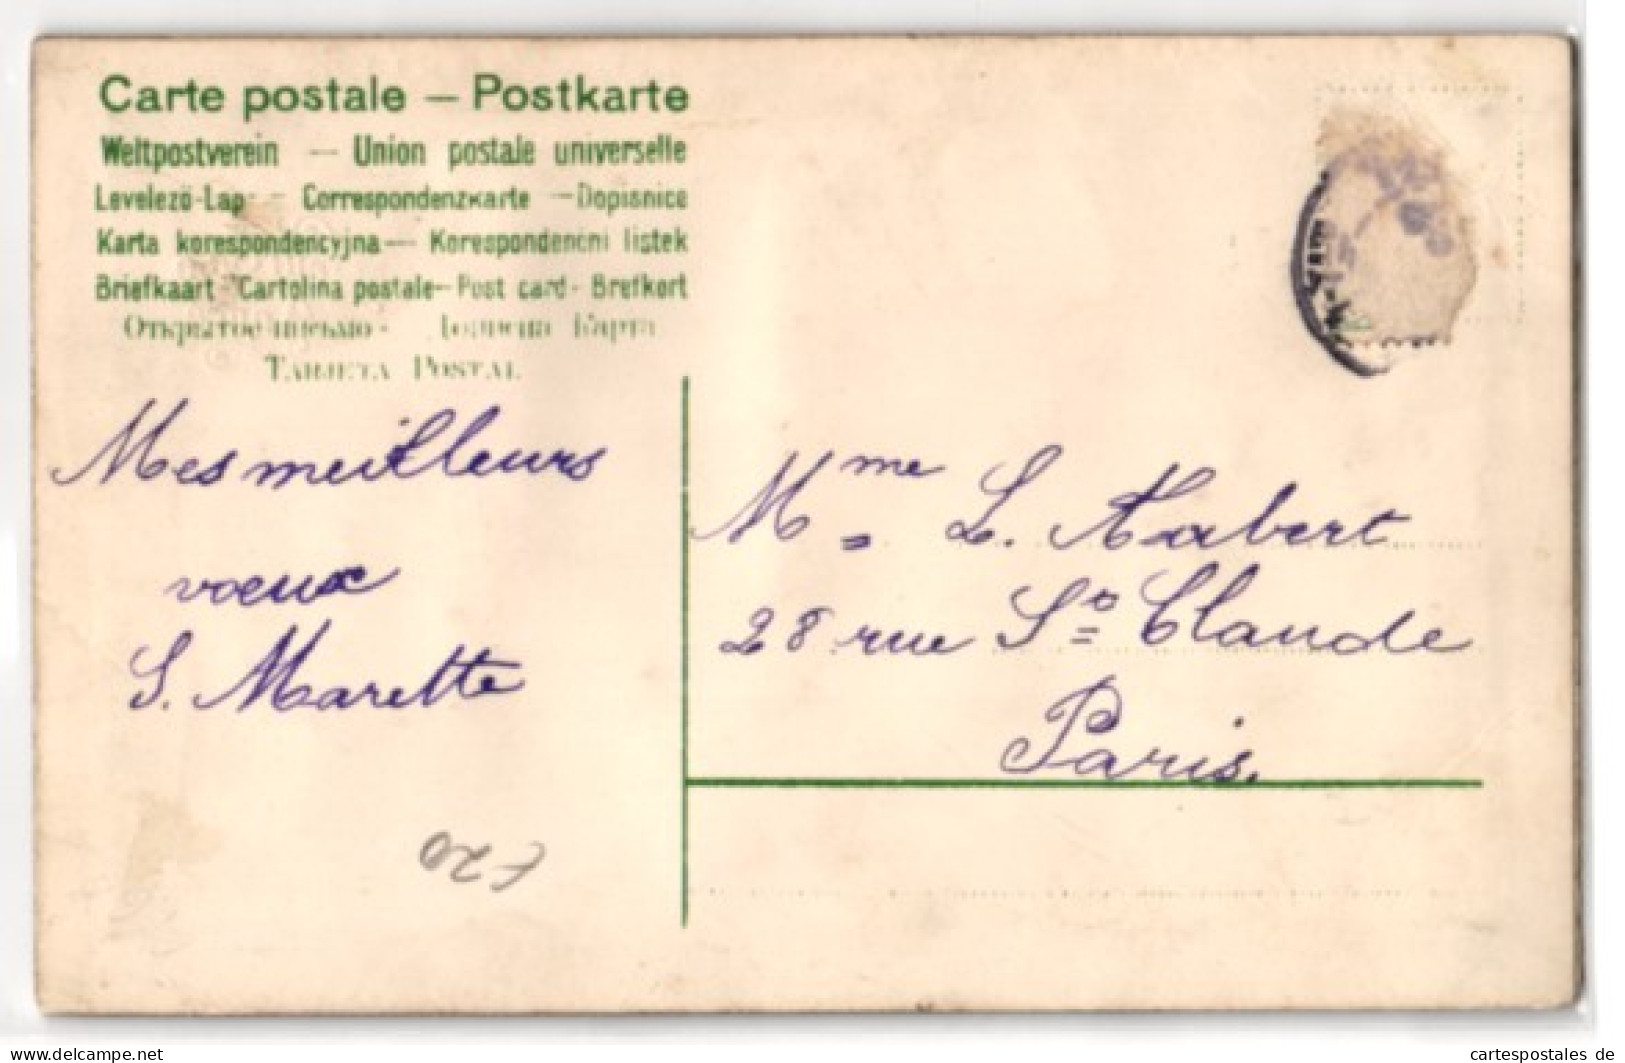 Carte postale – Postkarte
Weltpostverein – Union postale universelle
Levelező-Lap – Correspondenzkarte – Dopisnice
Karta korespondencyjna – Korespondenčni listek
Briefkaart - Cartolina postale – Post card - Brefkort
Открытое письмо -
TARJETA POSTAL
Mes meilleurs
voeux
S. Marette
Mme L. Habert
28 rue St Claude
Paris.
www.delcampe.net
cartespostales de